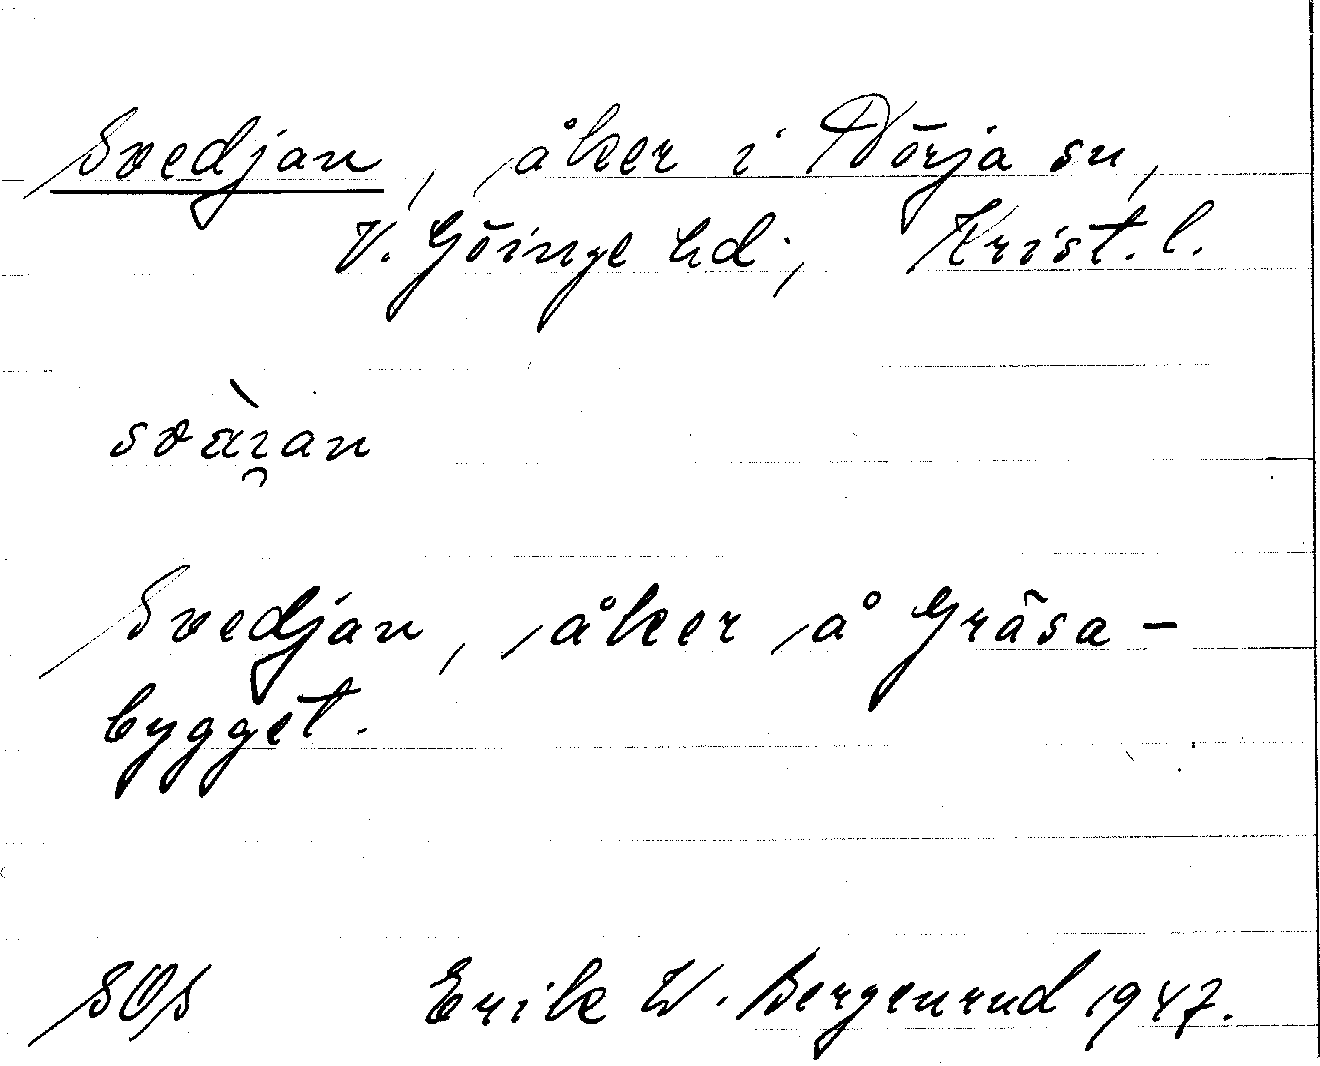 Svedjan, åker i Nörja sn,
V. Göinge hd., Krist. l.
svä̀ꝛ̯an
Svedjan, åker å Gräsa-
bygget.
SOS Erik W. Bergenrud 1947.